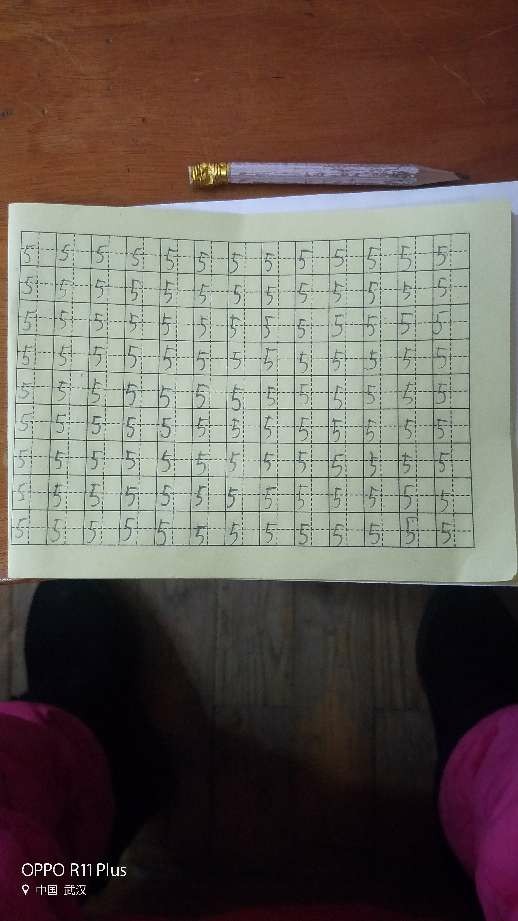 5 5 5 5 5 5 5 5 5 5 5 5 5
5 5 5 5 5 5 5 5 5 5 5 5 5
5 5 5 5 5 5 5 5 5 5 5 5 5
5 5 5 5 5 5 5 5 5 5 5 5 5
5 5 5 5 5 5 5 5 5 5 5 5 5
5 5 5 5 5 5 5 5 5 5 5 5 5
5 5 5 5 5 5 5 5 5 5 5 5 5
5 5 5 5 5 5 5 5 5 5 5 5 5
5 5 5 5 5 5 5 5 5 5 5 5 5
OPPO R11 Plus
中国 武汉